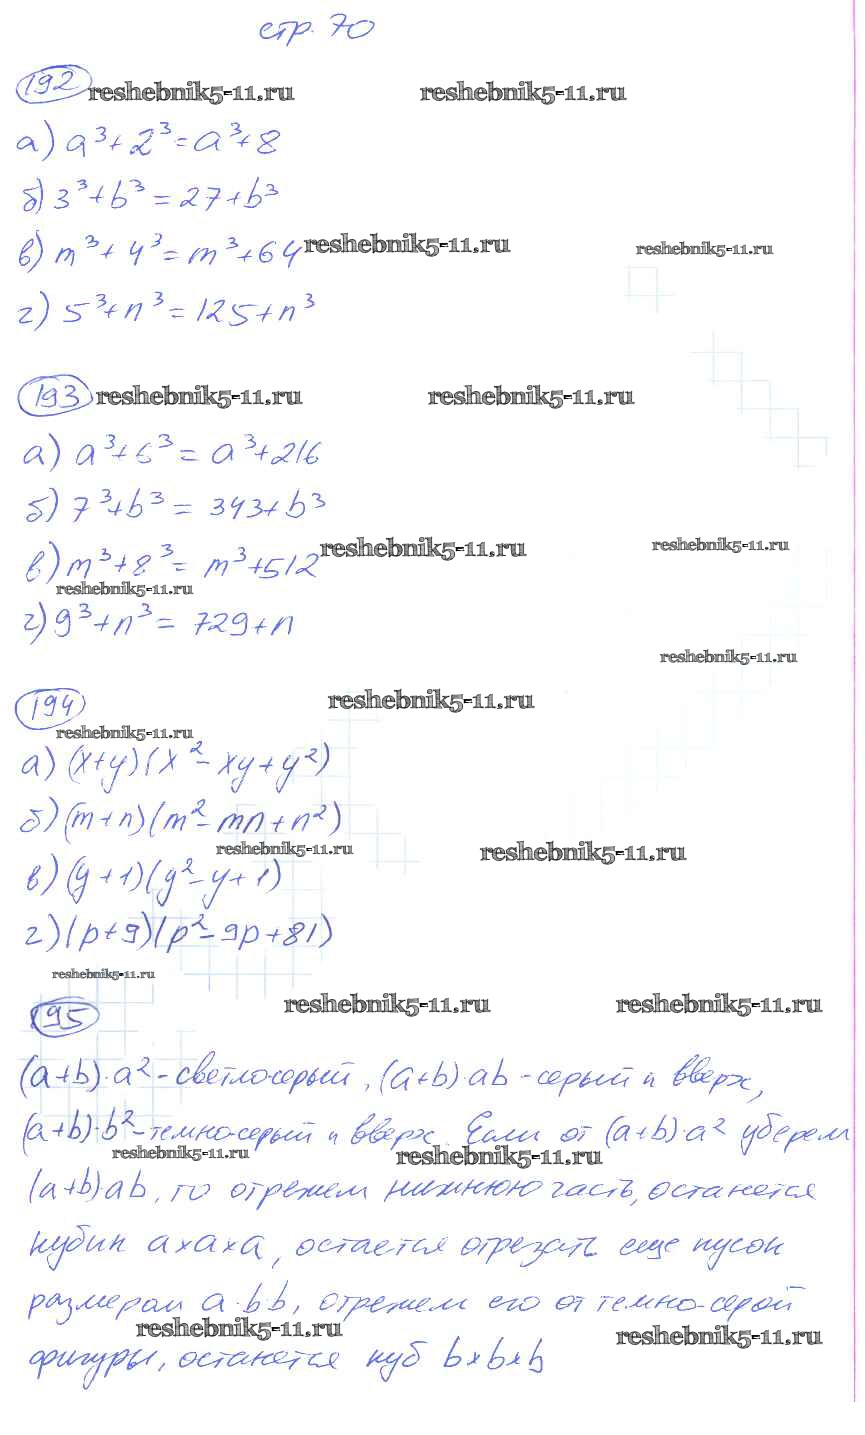 стр. 70
192 reshebnik5-11.ru reshebnik5-11.ru
а) a³+2³=a³+8
б) 3³+b³=27+b³
в) m³+4³=m³+64 reshebnik5-11.ru reshebnik5-11.ru
г) 5³+n³=125+n³
193 reshebnik5-11.ru reshebnik5-11.ru
а) a³+6³=a³+216
б) 7³+b³=343+b³
в) m³+8³=m³+512 reshebnik5-11.ru reshebnik5-11.ru
reshebnik5-11.ru
г) 9³+n³=729+n
reshebnik5-11.ru
194 reshebnik5-11.ru
reshebnik5-11.ru
а) (x+y)(x²-xy+y²)
б) (m+n)(m²-mn+n²)
reshebnik5-11.ru reshebnik5-11.ru
в) (y+1)(y²-y+1)
г) (p+9)(p²-9p+81)
reshebnik5-11.ru
195 reshebnik5-11.ru reshebnik5-11.ru
(a+b)·a²-светлосерый, (a+b)·ab-серый и вверх,
(a+b)·b²-темносерый и вверх. Если от (a+b)·a² уберем
reshebnik5-11.ru reshebnik5-11.ru
(a+b)ab, то отрежем нижнюю часть, останется
кубик axaxa, остается отрезать еще кусок
размером a·bb, отрежем его от темно-серой
reshebnik5-11.ru reshebnik5-11.ru
фигуры, останется куб bxbxb